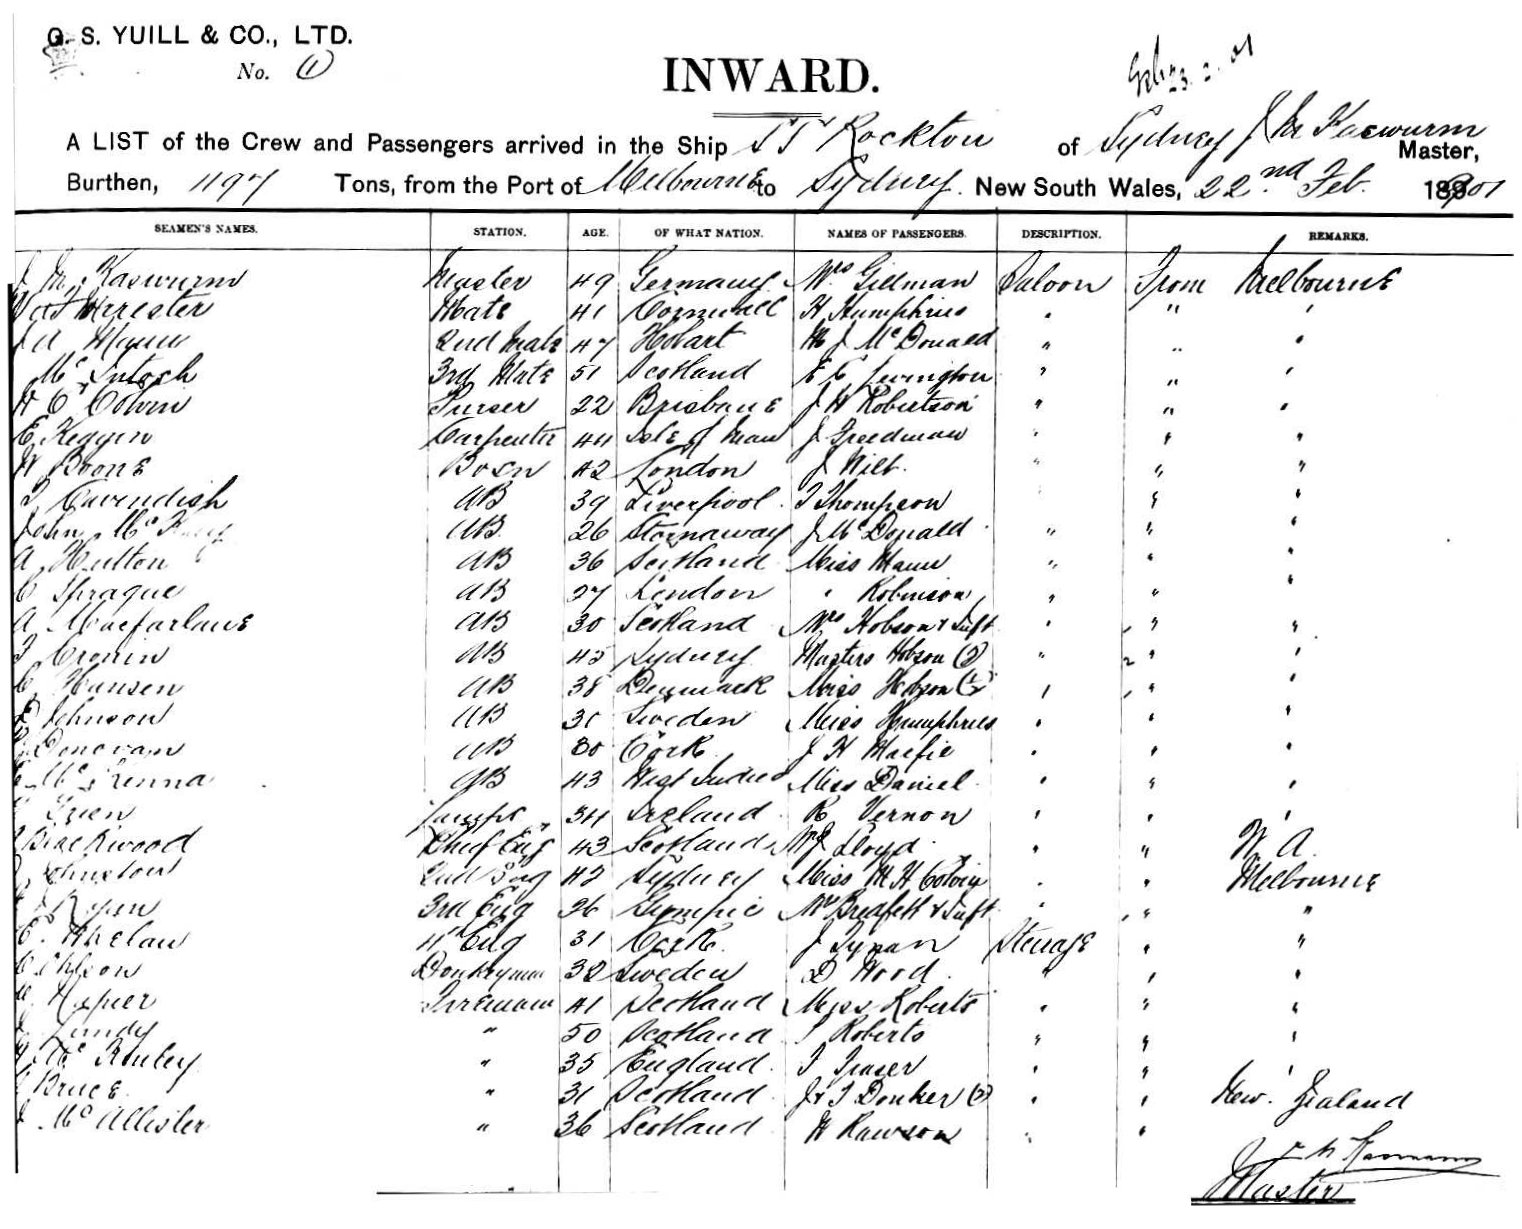 G. S. YUILL & CO., LTD.
No. (1)
INWARD.
23. 2. 01
A LIST of the Crew and Passengers arrived in the Ship SS Rockton of Sydney J M Kaswurm Master,
Burthen, 1197 Tons, from the Port of Melbourne to Sydney. New South Wales, 22nd Feb. 1901
SEAMEN'S NAMES. STATION. AGE. OF WHAT NATION. NAMES OF PASSENGERS. DESCRIPTION. REMARKS.
J M, Kaswurm Master 49 Germany Mrs Gillman Saloon From Melbourne
Mate 41 Cornwall H Humphries " " "
2nd Mate 47 Hobart J McDonald " " "
McIntosh 3rd Mate 51 Scotland E E Levington " " "
H C Colvin Purser 22 Brisbane J H Robertson " " "
E Keggin Carpenter 44 Isle of Man J Freedman " " "
W Boone Bosn 42 London J " " "
Cavendish AB 39 Liverpool T Thompson " "
John Mc AB 26 Stornaway J McDonald " " "
A Hutton AB 36 Scotland Miss Mann " " "
C Sprague AB 27 London " Robinson " " "
A Macfarlane AB 30 Scotland Mrs Hobson & Inft " " "
Cronin AB 45 Sydney Masters Hobson (2) " 2 " "
C Hansen AB 38 Denmark Miss Hobson (1/2) " " "
Johnson AB 30 Sweden Miss Humphries " " "
Donovan AB 30 Cork J H Macfie " " "
McKenna AB 43 West Indies Miss Daniel " " "
Green Lamps 34 Ireland R Vernon " " "
Blackwood Chief Eng 43 Scotland Lloyd " " W. A.
Johnston 2nd Eng 42 Sydney Miss M H Colvin " " Melbourne
Ryan 3rd Eng 26 Gympie & Inft " " "
E. Whelan 4th Eng 31 Cork J Tynan Steerage " "
C Ohlson Donkeyman 32 Sweden D Wood " " "
Napier Fireman 41 Scotland Miss Roberts " " "
Lundy " 50 Scotland Roberts " " "
" 35 England T Fraser " " "
Bruce " 31 Scotland J & T Donker (2) " " New Zealand
J McAllister " 36 Scotland H Rawson " "
J M Kaswurm
Master